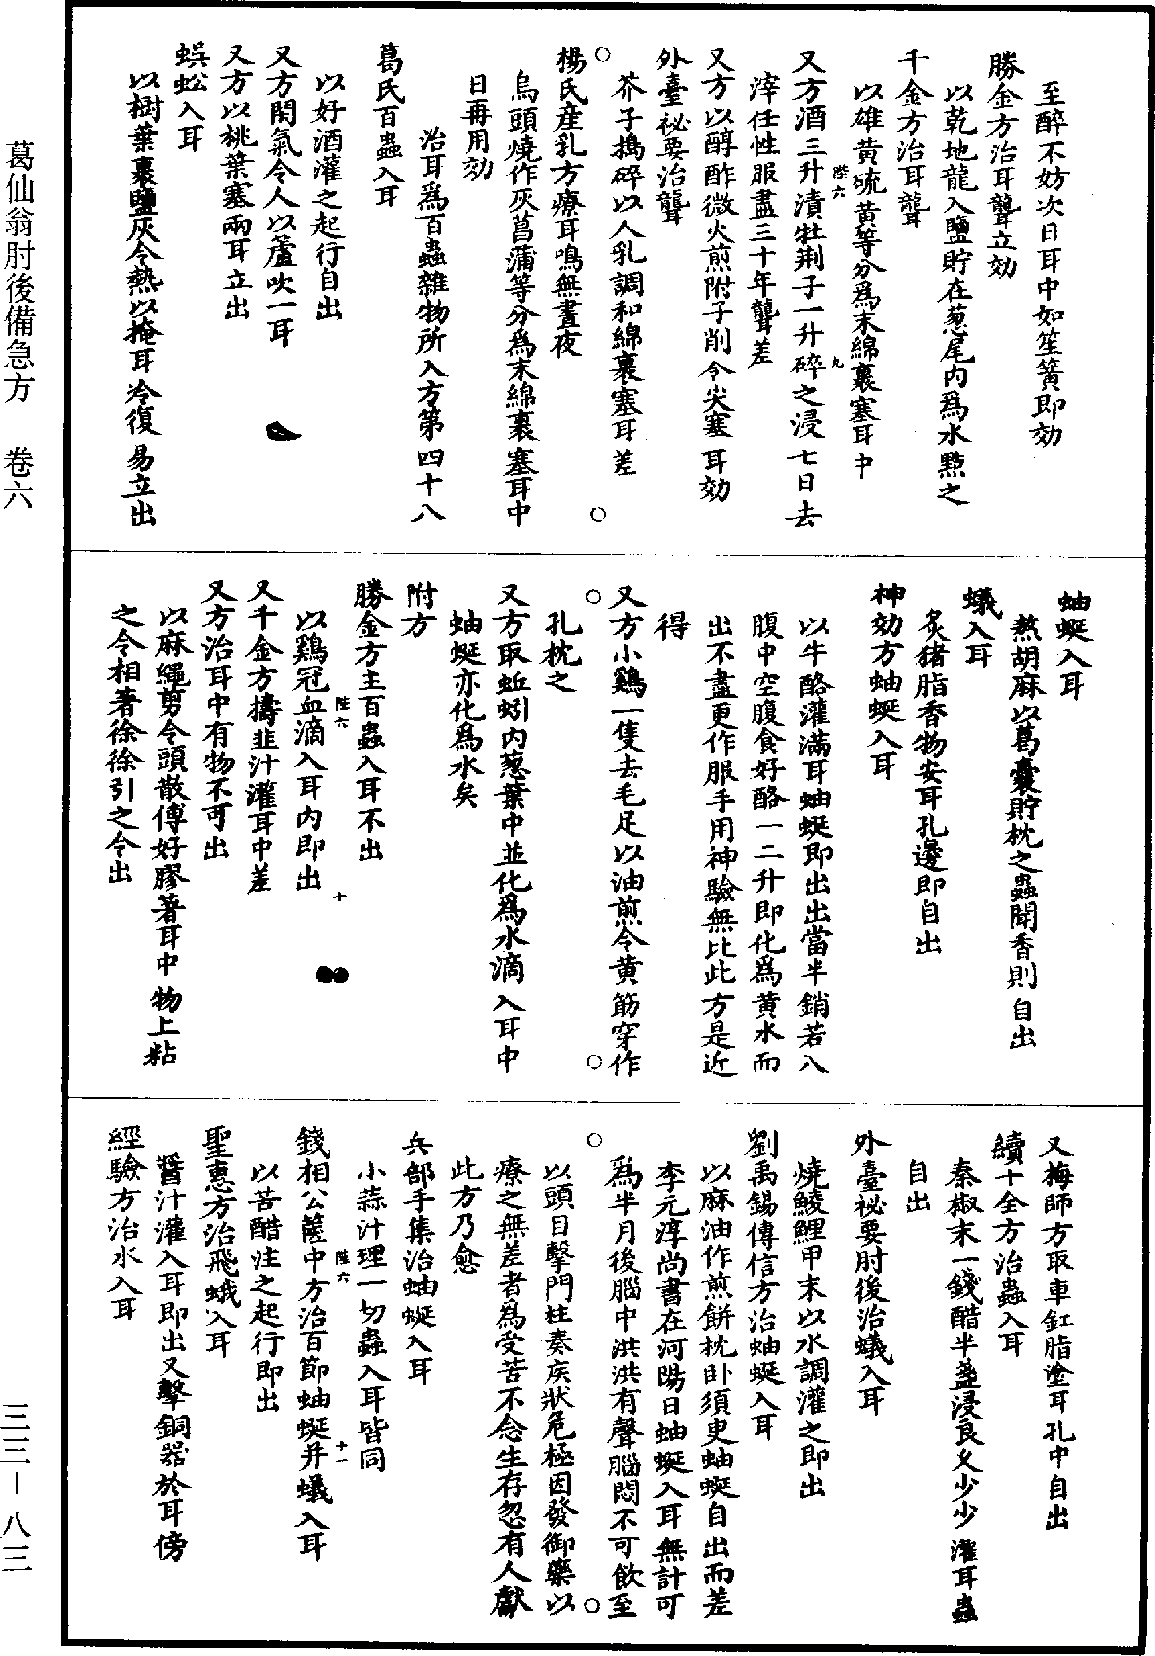 至醉不妨次日耳中如笙簧即効
勝金方治耳聾立効
以乾地龍入鹽貯在葱尾内爲水點之
千金方治耳聾
以雄黄硫黄等分爲末綿裹塞耳中
又方酒三升漬牡荆子一升碎之浸七日去
陛六
九
滓任性服盡三十年聾差
又方以醇酢微火煎附子削令尖塞耳効
外臺祕要治聾
芥子搗碎以人乳調和綿裹塞耳差
楊氏産乳方療耳鳴無晝夜
烏頭燒作灰菖蒲等分爲末綿裹塞耳中
日再用効
治耳爲百蟲雜物所入方第四十八
葛氏百蟲入耳
以好酒灌之起行自出
又方閉氣令人以蘆吹一耳
又方以桃葉塞兩耳立出
蜈蚣入耳
以樹葉裹鹽灰令熱以掩耳冷復易立出
蚰蜒入耳
熬胡麻以葛囊貯枕之蟲聞香則自出
蟻入耳
炙猪脂香物安耳孔邊即自出
神効方蚰蜒入耳
以牛酪灌滿耳蚰蜒即出出當半銷若入
腹中空腹食好酪一二升即化爲黄水而
出不盡更作服手用神驗無比此方是近
得
又方小鷄一隻去毛足以油煎令黄筋穿作
孔枕之
又方取蚯蚓内葱葉中並化爲水滴入耳中
蚰蜒亦化爲水矣
附方
勝金方主百蟲入耳不出
陛六
十
以鷄冠血滴入耳内即出
又千金方擣韭汁灌耳中差
又方治耳中有物不可出
以麻繩剪令頭散傅好膠著耳中物上粘
之令相著徐徐引之令出
又梅師方取車釭脂塗耳孔中自出
續十全方治蟲入耳
秦椒末一錢醋半盞浸良久少少灌耳蟲
自出
外臺祕要肘後治蟻入耳
燒鯪鯉甲末以水調灌之即出
劉禹錫傳信方治蚰蜒入耳
以麻油作煎餅枕卧須臾蚰蜒自出而差
李元淳尚書在河陽日蚰蜒入耳無計可
爲半月後腦中洪洪有聲腦悶不可飲至
以頭目擊門柱奏疾狀危極因發御藥以
療之無差者爲受苦不念生存忽有人獻
此方乃愈
兵部手集治蚰蜒入耳
小蒜汁理一切蟲入耳皆同
陛六
十一
錢相公篋中方治百節蚰蜒并蟻入耳
以苦醋注之起行即出
聖惠方治飛蛾入耳
醤汁灌入耳即出又擊銅器於耳傍
經驗方治水入耳
葛仙翁肘後備急方 卷六
三三－八三